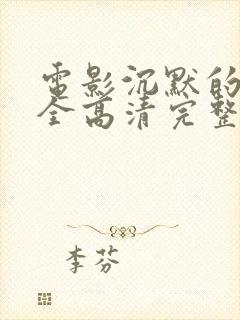 電影沉默的
全高清完整
李芬